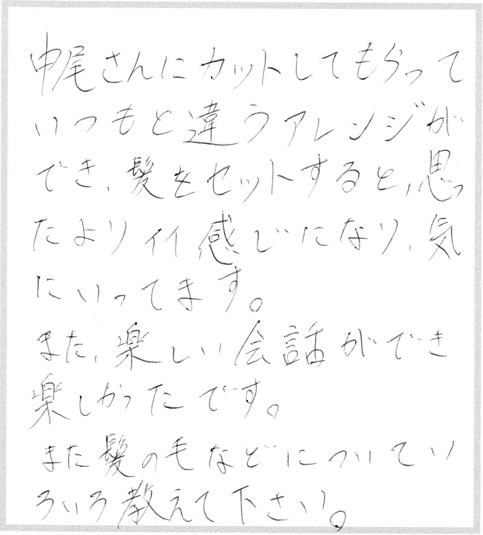 中尾さんにカットしてもらって
いつもと違うアレンジが
でき、髪をセットすると、思っ
たよりイイ感じになり、気
にいってます。
また、楽しい会話ができ
楽しかったです。
また髪の毛などについてい
ろいろ教えて下さい。